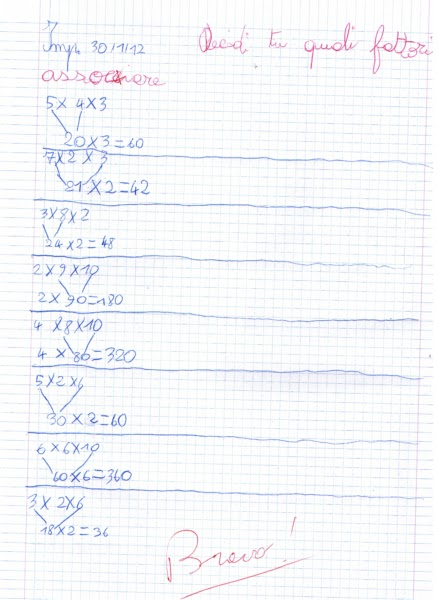 30/1/12 Decidi tu quali fattori
associare
5 x 4 x 3
20 x 3 = 60
7 x 2 x 3
21 x 2 = 42
3 x 8 x 2
24 x 2 = 48
2 x 9 x 10
2 x 90 = 180
4 x 8 x 10
4 x 80 = 320
5 x 2 x 6
30 x 2 = 60
6 x 6 x 10
60 x 6 = 360
3 x 2 x 6
18 x 2 = 36
Bravo!